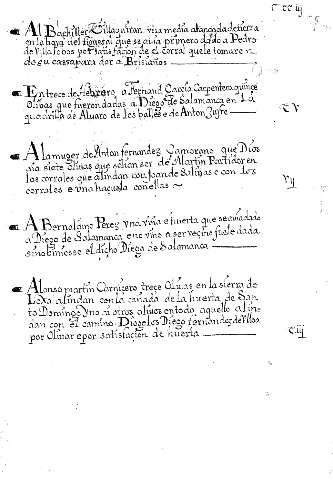 Al Bachiller Villaquiran una media aranzada de tierra
en la hoya del que se auia primero dado a Pedro
de Villalobos por satisfacion de el corral que le tomaron
do su casa para dar a Bristianos
En trece de hebrero a Fernand Garcia Carpentero quince
Oliuas que fueron dadas a Diego de Salamanca en la
quadrilla de Aluaro de los valles e de Anton Zufre
A la muger de Anton fernandez Camorano que Dios
aia siete Oliuas que solian ser de Martin Partidor en
los corrales que alindan con Joan de Salinas e con los
corrales e una haçuela con ellas
A Bernaldino Perez vna viña e huerta que se auia dado
a Diego de Salamanca que vino a ser vezino fuele dada
si no biniesse el dicho Diego de Salamanca
Alonso martin Carnicero trece Oliuas en la sierra de
Loxa alindan con la cañada de la huerta de San
to Domingo y no a otros oliuos en todo aquello alin
dan con el camino Dioselos Diego fernandez de Ulloa
por Oliuar e por satisfacion de huerta